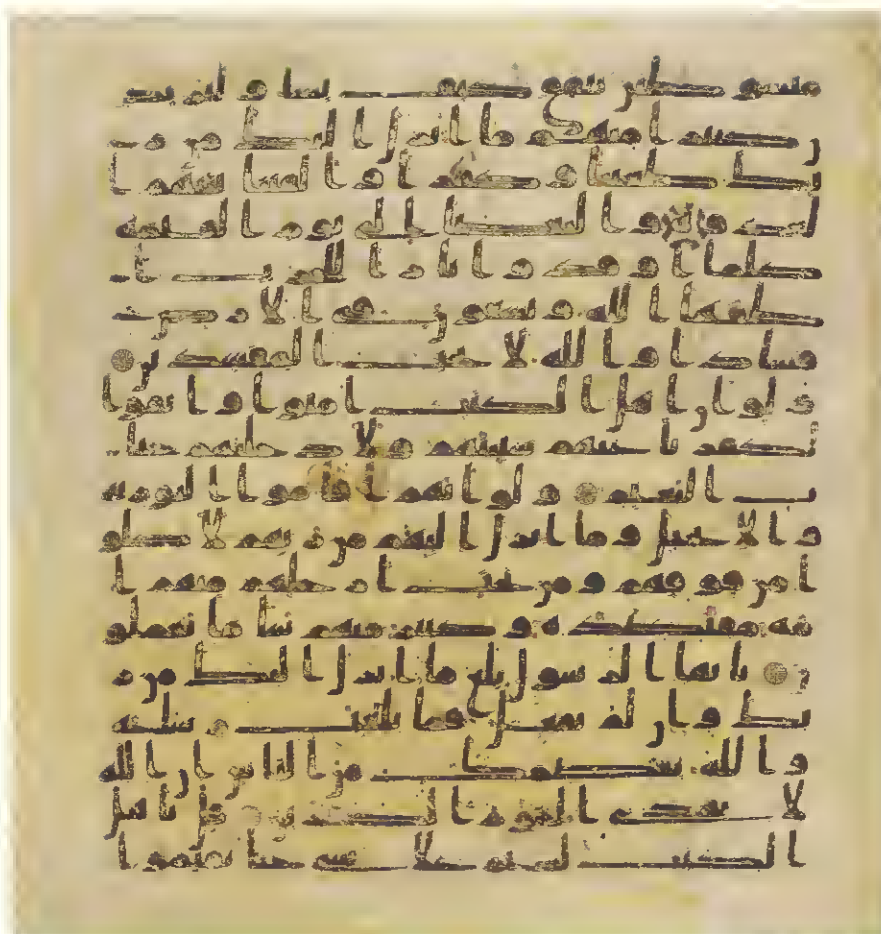 مبسوطتن ينفق كيف يشا وليزيد
ن كثيرا منهم ما انزل اليك من ر
بك طغينا وكفرا والقينا بينهم ا
لعدوة والبغضا الى يوم القيمة
كلما اوقدوا نارا للحرب ا
طفاها الله ويسعون في الارض
فسادا والله لا يحب المفسدين
ولو ان اهل الكتب امنوا واتقوا
لكفرنا عنهم سياتهم ولادخلنهم جنـ
ت النعيم ولو انهم اقاموا التورية
والانجيل وما انزل اليهم من ربهم لاكلو
ا من فوقهم ومن تحت ارجلهم منهم ا
مة مقتصدة وكثير منهم سا ما يعملو
ن يايها الرسول بلغ ما انزل اليك من
ربك وان لم تفعل فما بلغت رسلته
والله يعصمك من الناس ان الله
لا يهدي القوم الكفرين قل ياهل
الكتب لستم على شي حتى تقيموا